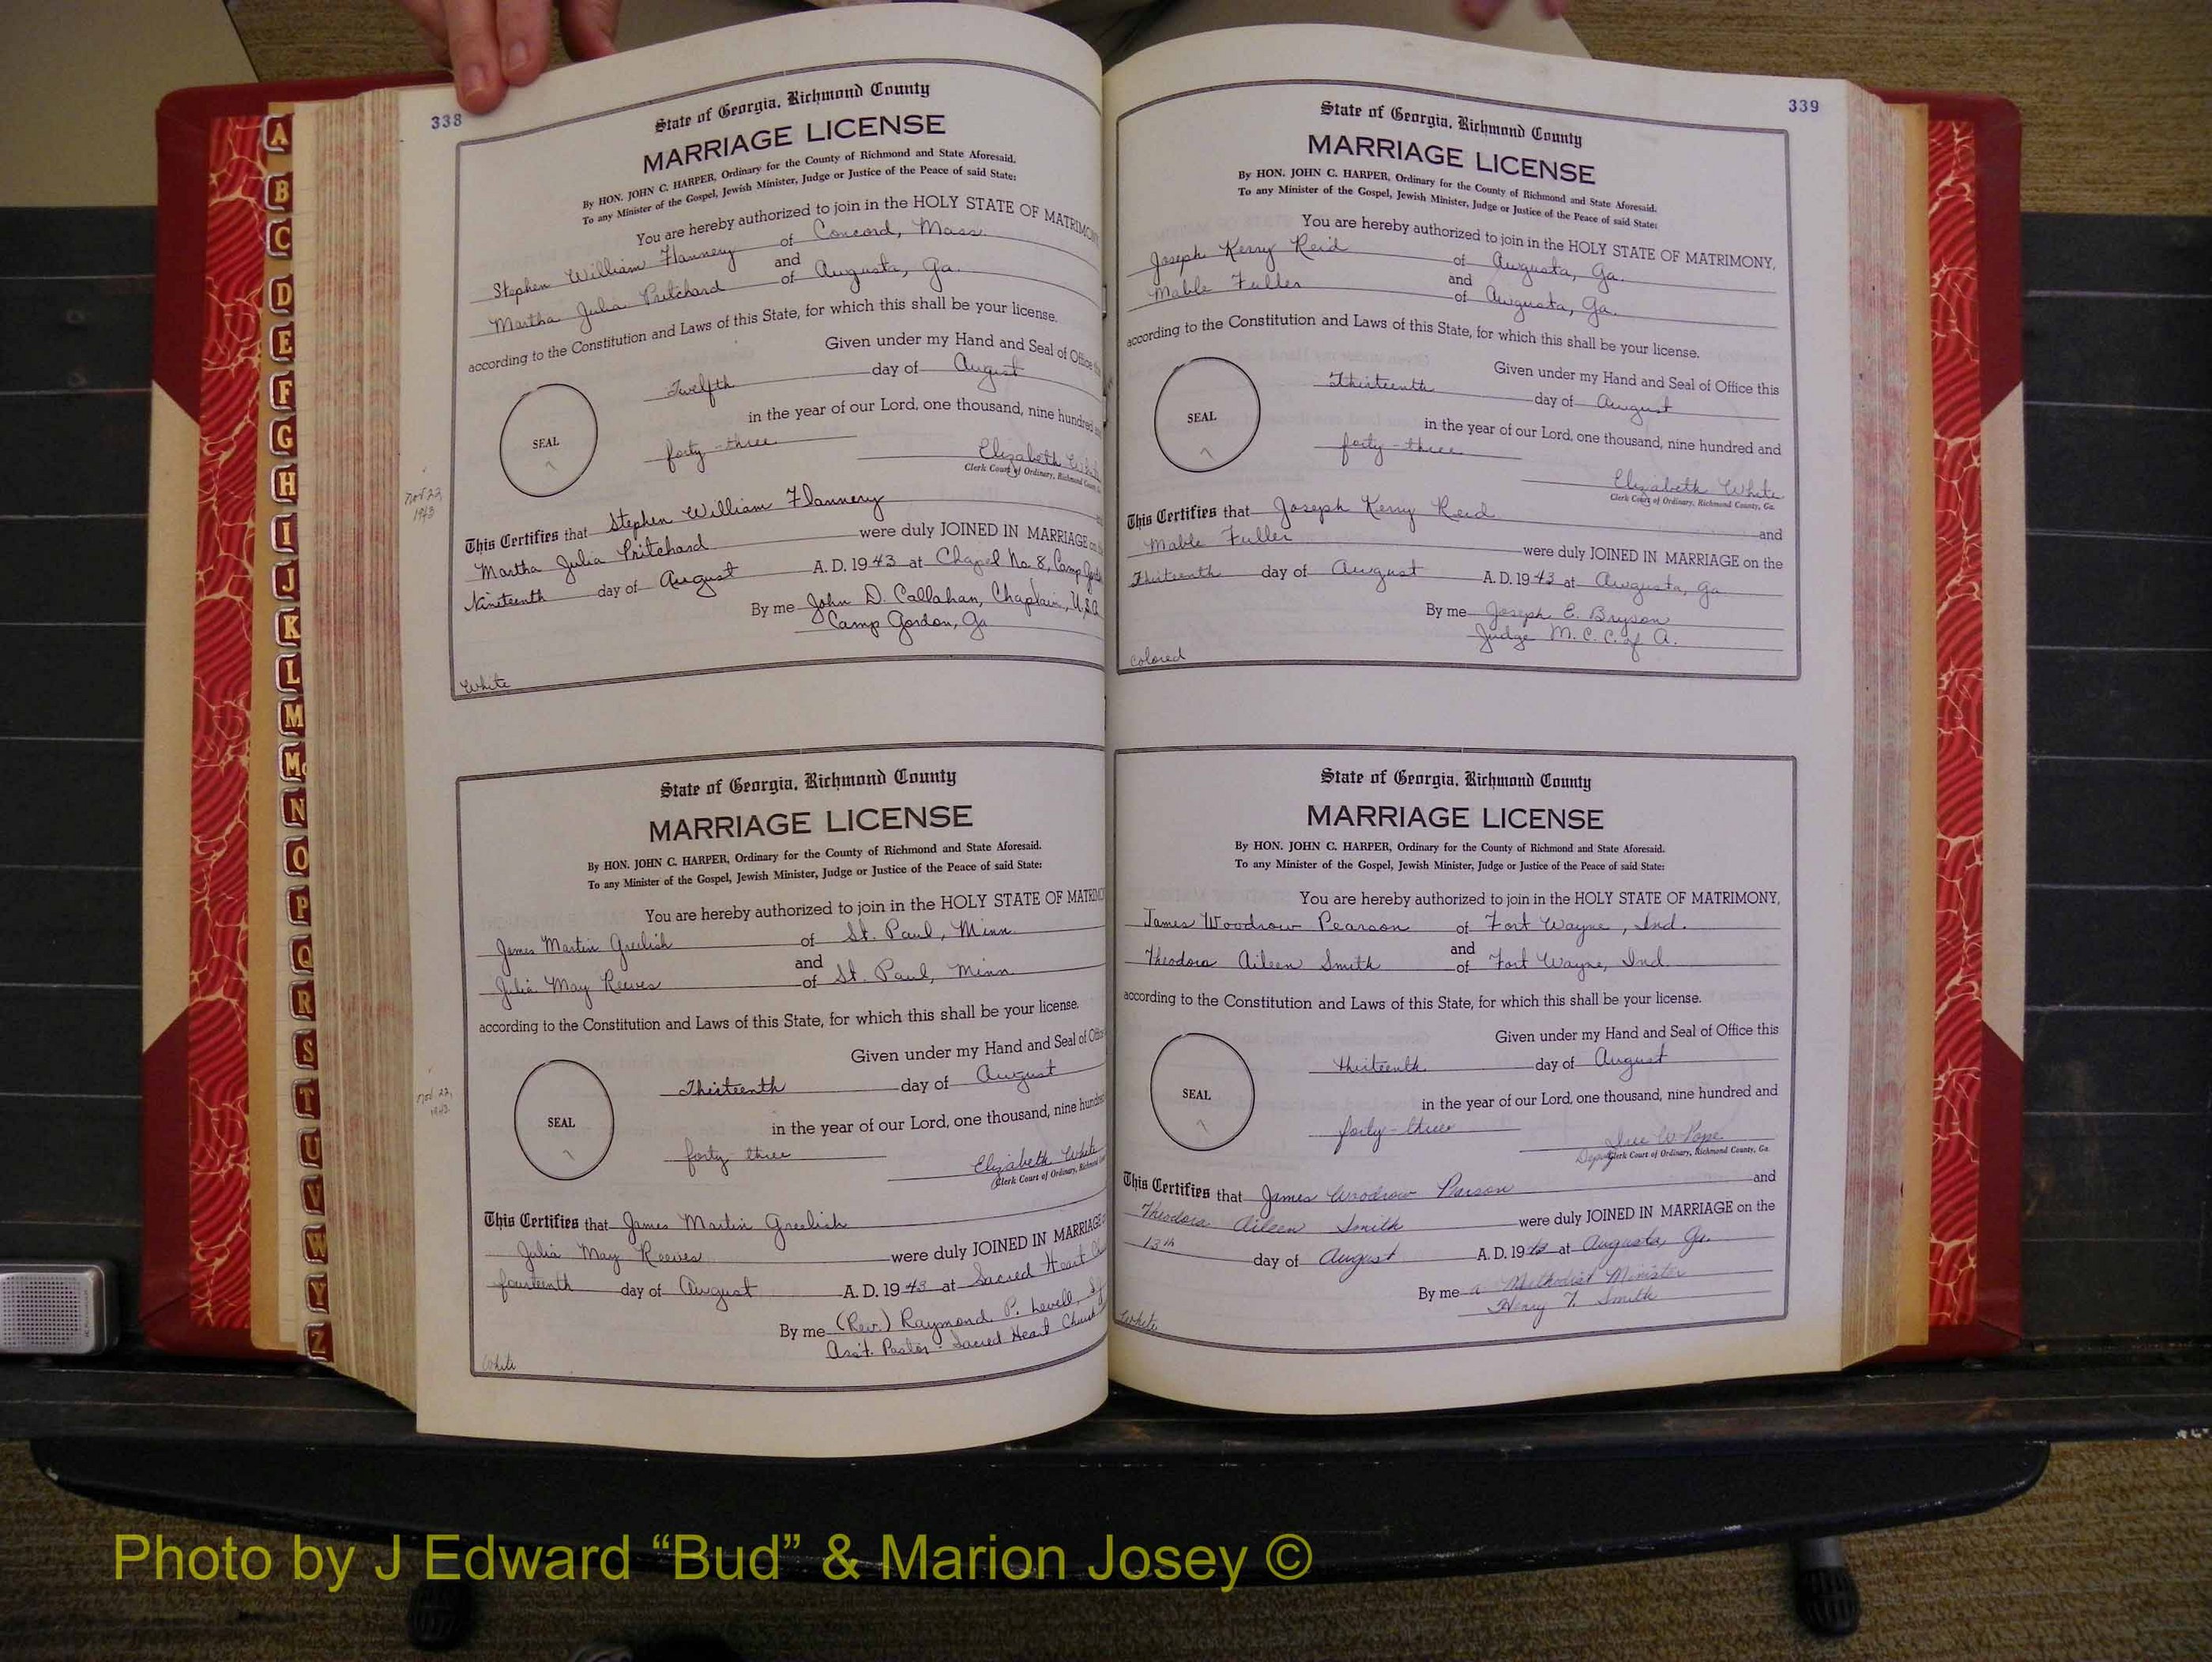 338
State of Georgia, Richmond County
MARRIAGE LICENSE
By HON. JOHN C. HARPER, Ordinary for the County of Richmond and State Aforesaid.
To any Minister of the Gospel, Jewish Minister, Judge or Justice of the Peace of said State:
You are hereby authorized to join in the HOLY STATE OF MATRIMONY
Stephen William Flannery of Concord, Mass.
and
Martha Julia Pritchard of Augusta, Ga.
according to the Constitution and Laws of this State, for which this shall be your license.
Given under my Hand and Seal of Office this
Twelfth day of August
in the year of our Lord, one thousand, nine hundred and
SEAL
forty-three
Elizabeth White
Clerk Court of Ordinary, Richmond County, Ga
Nov 22, 1943
This Certifies that Stephen William Flannery
Martha Julia Pritchard were duly JOINED IN MARRIAGE on
Nineteenth day of August A. D. 1943 at Chapel No. 8, Camp Gordon
By me John D. Callahan, Chaplain, U.S.A
Camp Gordon, Ga
White
State of Georgia, Richmond County
MARRIAGE LICENSE
By HON. JOHN C. HARPER, Ordinary for the County of Richmond and State Aforesaid.
To any Minister of the Gospel, Jewish Minister, Judge or Justice of the Peace of said State:
You are hereby authorized to join in the HOLY STATE OF MATRIMO
James Martin Greelish of St. Paul, Minn.
and
Julia May Reeves of St. Paul, Minn
according to the Constitution and Laws of this State, for which this shall be your license.
Given under my Hand and Seal of Office
Thirteenth day of August
in the year of our Lord, one thousand, nine hundred
SEAL
forty-three
Elizabeth White
Clerk Court of Ordinary, Richmond
Nov 22, 1943
This Certifies that James Martin Greelish
Julia May Reeves were duly JOINED IN MARRIAGE
fourteenth day of August A. D. 1943 at Sacred Heart
By me (Rev.) Raymond P.
Asst. Pastor Sacred Heart Church
White
339
State of Georgia, Richmond County
MARRIAGE LICENSE
By HON. JOHN C. HARPER, Ordinary for the County of Richmond and State Aforesaid.
To any Minister of the Gospel, Jewish Minister, Judge or Justice of the Peace of said State:
You are hereby authorized to join in the HOLY STATE OF MATRIMONY,
Joseph Kerry Reid of Augusta, Ga.
and
Mable Fuller of Augusta, Ga.
according to the Constitution and Laws of this State, for which this shall be your license.
Given under my Hand and Seal of Office this
Thirteenth day of August
in the year of our Lord, one thousand, nine hundred and
SEAL
forty-three
Elizabeth White
Clerk Court of Ordinary, Richmond County, Ga.
This Certifies that Joseph Kerry Reid
and
Mable Fuller were duly JOINED IN MARRIAGE on the
Thirteenth day of August A. D. 1943 at Augusta, Ga
By me Joseph E. Bryson
Judge M. C. C. of A.
Colored
State of Georgia, Richmond County
MARRIAGE LICENSE
By HON. JOHN C. HARPER, Ordinary for the County of Richmond and State Aforesaid.
To any Minister of the Gospel, Jewish Minister, Judge or Justice of the Peace of said State:
You are hereby authorized to join in the HOLY STATE OF MATRIMONY,
James Woodrow Pearson of Fort Wayne, Ind.
and
Theodora Aileen Smith of Fort Wayne, Ind.
according to the Constitution and Laws of this State, for which this shall be your license.
Given under my Hand and Seal of Office this
thirteenth day of August
in the year of our Lord, one thousand, nine hundred and
SEAL
forty-three
W Pope
Deputy Clerk Court of Ordinary, Richmond County, Ga
This Certifies that James Woodrow Pearson and
Theodora Aileen Smith were duly JOINED IN MARRIAGE on the
13th day of August A. D. 1943 at Augusta, Ga.
By me a Methodist Minister
Henry T. Smith
White
A
B
C
D
E
F
G
H
I
J
K
L
M
Mc
N
O
P
Q
R
S
T
U
V
W
Y
Z
Photo by J Edward “Bud” & Marion Josey ©